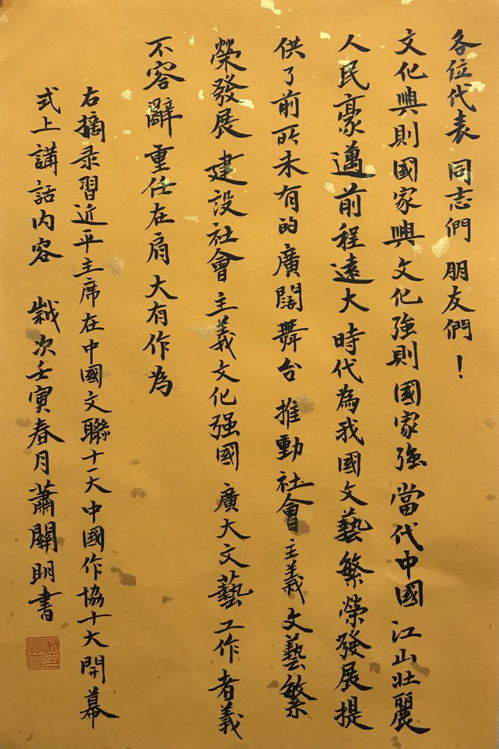 各位代表 同志們 朋友們！
文化興則國家興 文化強則國家強 當代中國 江山壯麗
人民豪邁 前程遠大 時代為我國文藝繁榮發展提
供了前所未有的廣闊舞台 推動社會主義文藝繁
榮發展 建設社會主義文化强國 廣大文藝工作者義
不容辭 重任在肩 大有作為
右摘录習近平主席在中國文聯十一大中國作協十大開幕
式上講話内容 歲次壬寅春月蕭關明書